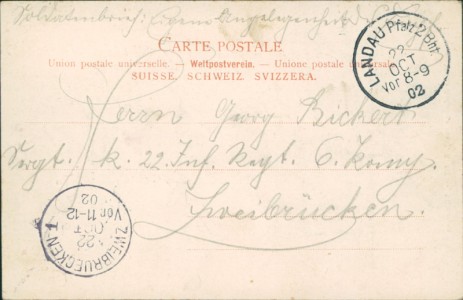 Soldatenbrief: Eigene Angelegenheit d. Empf.
CARTE POSTALE
Union postale universelle. — Weltpostverein. — Unione postale universale.
SUISSE. SCHWEIZ. SVIZZERA.
LANDAU Pfalz 2 Bhf.
22
OCT
Vor 8-9
02
Herrn Georg Bickert
Sergt. k. 22. Inf. Regt. 6. Komp.
Zweibrücken.
ZWEIBRUECKEN 1
22
OCT
Vor 11-12
02